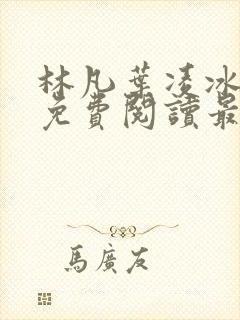 林凡葉凌冰
免費閱讀最
馬廣友